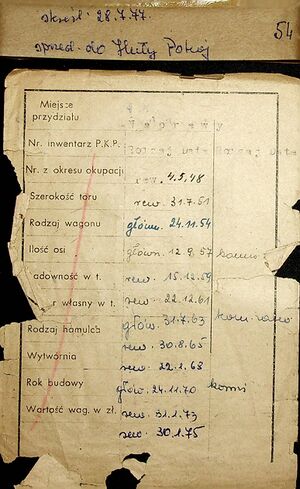 skreśl. 28.7.77.
sprzed. do Huty Pokój
54
Miejsce
przydziału
Naprawy
Nr. inwentarz P.K.P.
Rodzaj Data Rodzaj Data
Nr. z okresu okupacji
rew. 4.5.48
Szerokość toru rew. 31.7.51
Rodzaj wagonu główn. 24.11.54
Ilość osi główn. 12.9.57
adowność w t. rew. 15.12.59
r własny w t. rew. 22.12.61
Rodzaj hamulca głów. 31.7.63
rew. 30.8.65
Wytwórnia
rew. 22.1.68
Rok budowy głów. 24.11.70
Wartość wag. w zł. rew. 31.1.73
rew. 30.1.75